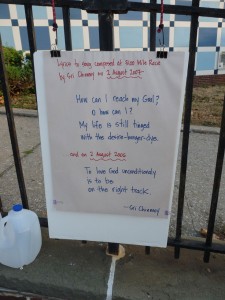 Lyrics to song composed at 3100 Mile Race
by Sri Chinmoy on 2 August 2007
How can I reach my Goal?
O how can I?
My life is still tinged
With the desire-hunger-dye.
and on 2 August 2006
To love God unconditionally
is to be
on the right track.
- Sri Chinmoy